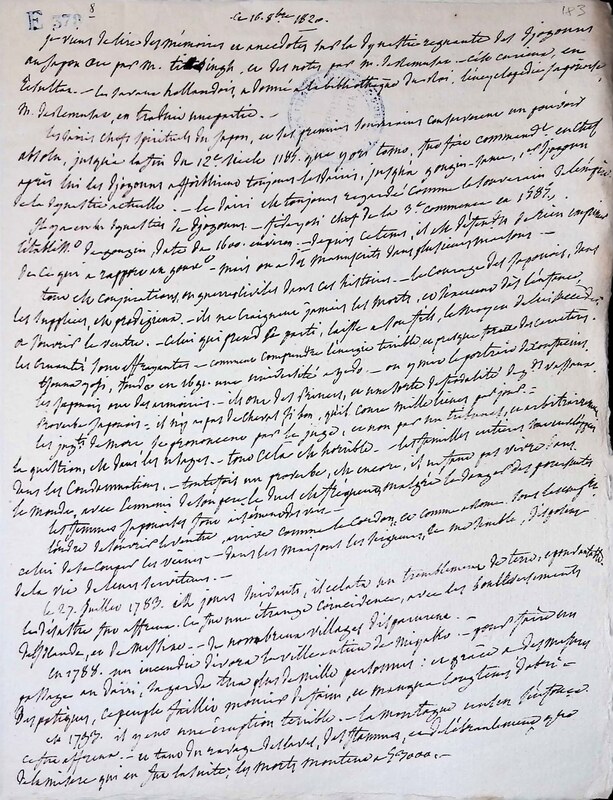 E 378 8
183
le 16. 8bre 1820.
je viens de lire des mémoires et anecdotes sur la dynastie regnante des Djogouns
au Japon ... par M. titsingh, et des notes par M. de remusat — cela curieux, en
résulter. — le savant hollandois, a donné à la bibliothèque du Roi, l'encyclopédie japonoise
M. de remusat, en traduit une partie. —
les Daïris chefs spirituels du japon, et ses premiers souverains conservèrent un pouvoir
absolu, jusqu'à la fin du 12e siècle 1185. que yori tomo, fut fait commandt en chef
après lui les Djogouns affoiblirent toujours les Dairis, jusqu'à gongin-sama, 1er Djogoun
de la dynastie actuelle. — le Dairi est toujours regardé comme le souverain de l'empire
il y a eu dynasties de Djogouns. — fideyosi chef de la 3e commence en 1587.
l'établisst de gongin, date de 1600. environ. — depuis ce tems, il est défendu de rien imprimer
de ce qui a rapport au gouvt — mais on a des manuscrits dans plusieurs maisons. —
tout est conjurations, ou guerres civiles dans ces histoires. — le courage des japonois, dans
les supplices, est prodigieux. — ils ne craignent jamais la mort, et s'exercent dès l'enfance,
à s'ouvrir le ventre. — celui qui prend ce parti, laisse à son fils, le moyen de lui succéder
les cruautés sont effrayantes — comment comprendre l'énergie terrible et presque féroce des caractères.
tsouna yosi, fonda en 1691 une université a yedo. — on y mit le portrait de Confucius.
les japonois ont des armoiries. — ils ont des Princes, et une sorte de féodalité de gds vassaux.
Proverbe japonois: il n'y a pas de cheval si bon, qu'il coure mille lieues par jour. —
les jugts de mort se prononcent par le juge, et non par un tribunal, et arbitrairement
la question, est dans les usages. — tout cela est horrible. — les familles entières sont enveloppées
dans les condamnations. — toutefois un proverbe, est encore, il ne faut pas vivre sous
le monde, avec l'ennemi de son père. le duel est fréquent, malgré le danger des poursuites
les femmes japonoises font aisément des vers. —
l'ordre de s'ouvrir le ventre, arrive comme le cordon, et comme à Rome, sous les empereurs
celui de se couper les veines — dans les maisons les seigneurs, ce me semble, disposent
de la vie de leurs serviteurs. —
le 27. juillet 1783. et jours suivants, il éclata un tremblement de terre, épouvantable
le désastre fut affreux. ce fut une étrange coïncidence, avec les bouleversements
d'Islande, et de Messine. — de nombreux villages disparurent. —
en 1788. un incendie dévora la ville entière de Miyako. — pour faire un
passage au Dairi, sa garde tua plus de mille personnes: et grâce à des mesures
despotiques, ce peuple faillit mourir de faim, et manqua longtems d'abri. —
en 1793. il y eut une éruption terrible. — la montagne unsen s'enfonça
ce fut affreux. — et tant du ravage des laves, des flammes, ... d'ébranlement, que
de la misère qui en fut la suite; les morts montent à 53000. —